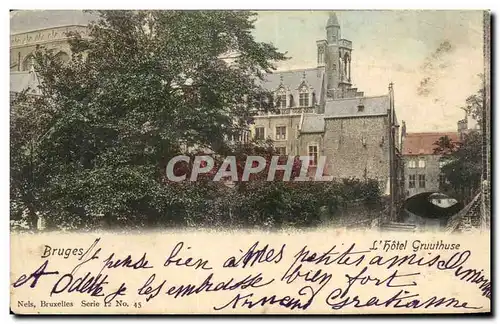 CPARAMA
Bruges
L'Hôtel Gruuthuse
Je pense bien à mes petites amies Simon
et Odette je les embrasse bien fort
Normand
Nels, Bruxelles Serie 12 No. 45